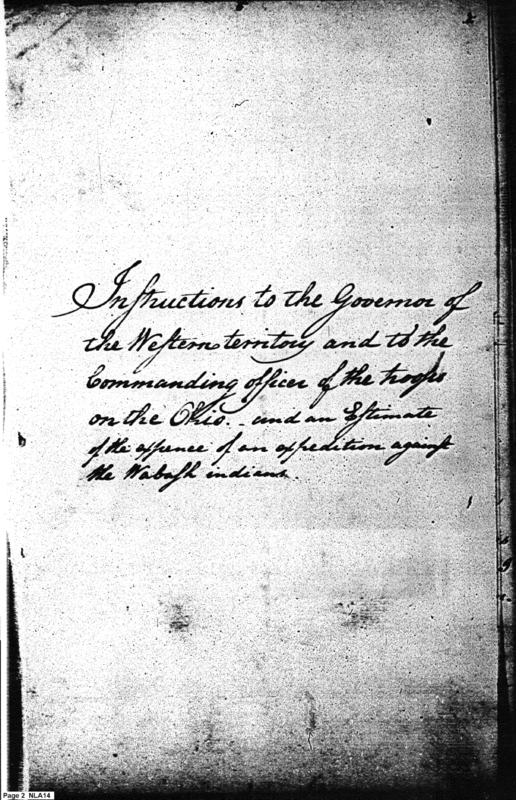 Instructions to the Governor of
the Western territory and to the
Commanding officer of the troops
on the Ohio. - and an Estimate
of the expence of an expedition against
the Wabash indians.
Page 2 NLA14